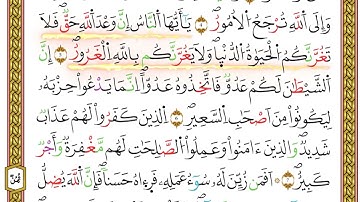 وَإِلَى ٱللَّهِ تُرْجَعُ ٱلْأُمُورُ ٤ يَٰٓأَيُّهَا ٱلنَّاسُ إِنَّ وَعْدَ ٱللَّهِ حَقٌّ فَلَا
تَغُرَّنَّكُمُ ٱلْحَيَوٰةُ ٱلدُّنْيَا وَلَا يَغُرَّنَّكُم بِٱللَّهِ ٱلْغَرُورُ ٥ إِنَّ
ٱلشَّيْطَٰنَ لَكُمْ عَدُوٌّ فَٱتَّخِذُوهُ عَدُوًّا إِنَّمَا يَدْعُوا۟ حِزْبَهُۥ
لِيَكُونُوا۟ مِنْ أَصْحَٰبِ ٱلسَّعِيرِ ٦ ٱلَّذِينَ كَفَرُوا۟ لَهُمْ عَذَابٌ
شَدِيدٌ وَٱلَّذِينَ ءَامَنُوا۟ وَعَمِلُوا۟ ٱلصَّٰلِحَٰتِ لَهُم مَّغْفِرَةٌ وَأَجْرٌ
كَبِيرٌ ٧ أَفَمَن زُيِّنَ لَهُۥ سُوٓءُ عَمَلِهِۦ فَرَءَاهُ حَسَنًا فَإِنَّ ٱللَّهَ يُضِلُّ
ثُمُنٌ